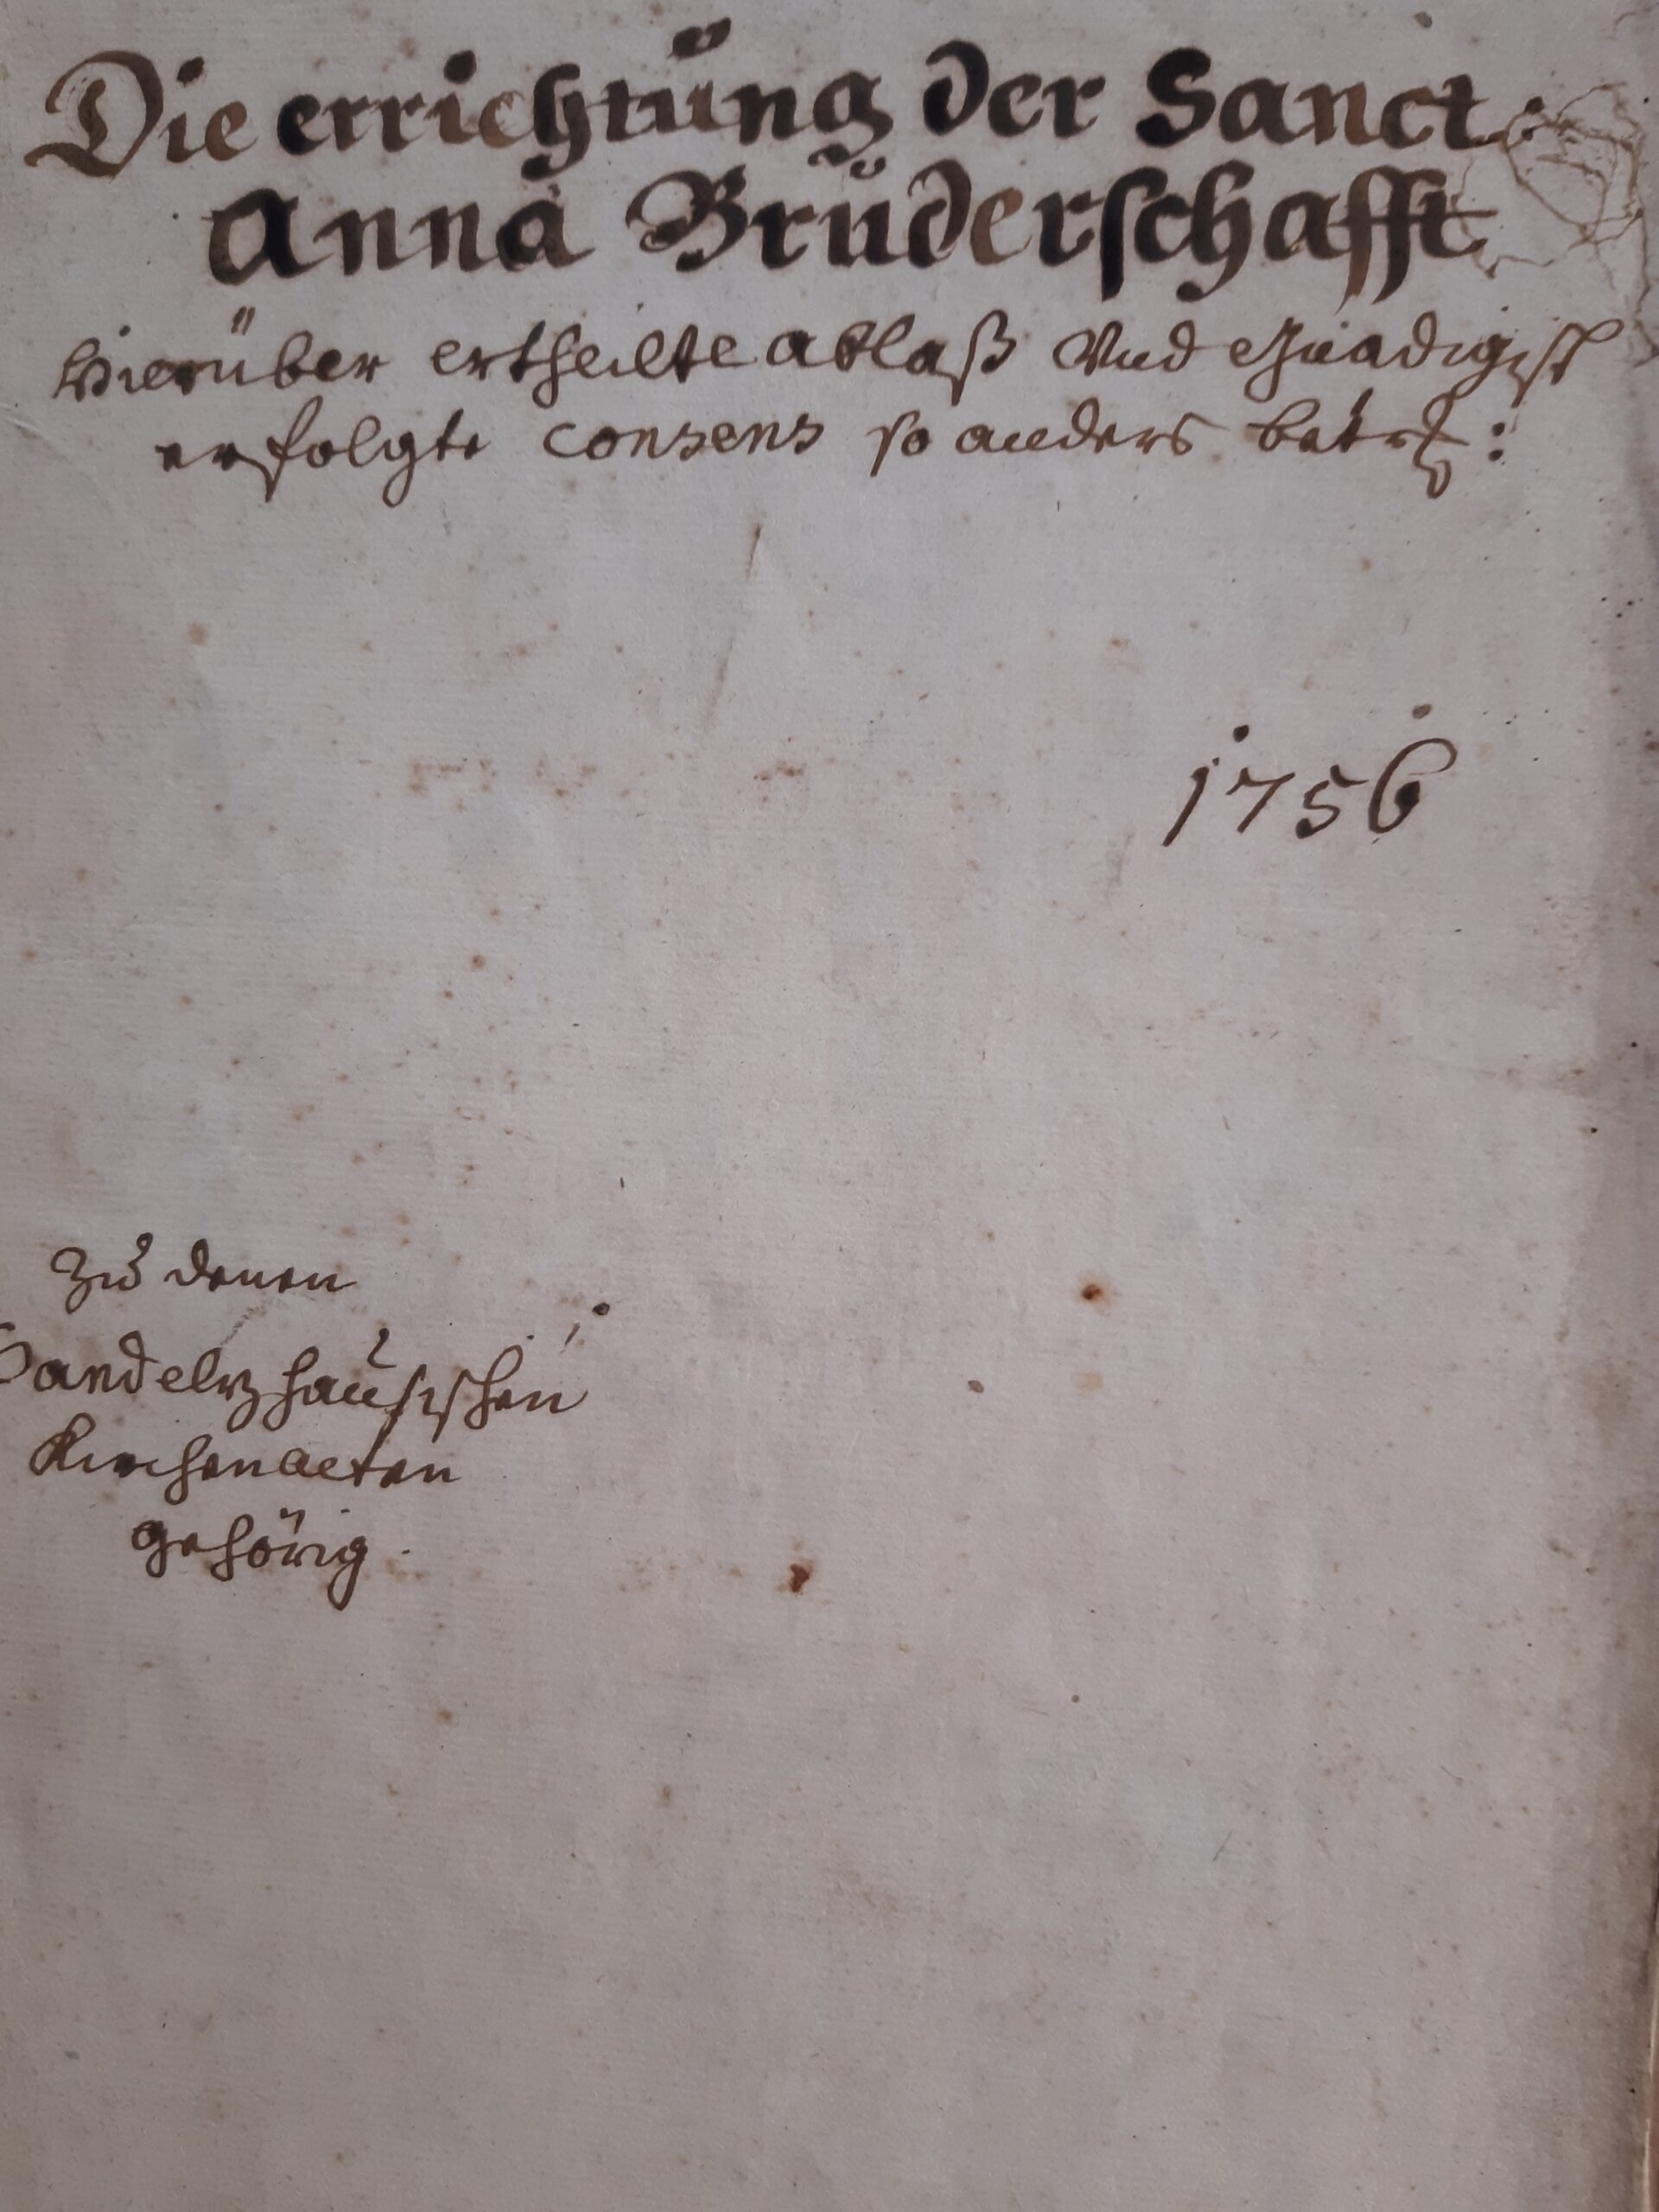 Die errichtung der Sanct
Anna Bruderschafft
hierüber ertheilte ablaß Und Gnädigist
erfolgte consens so anders betrf:
1756
Zu denen
Sandelzhausischen
Kirchenacten
gehörig.